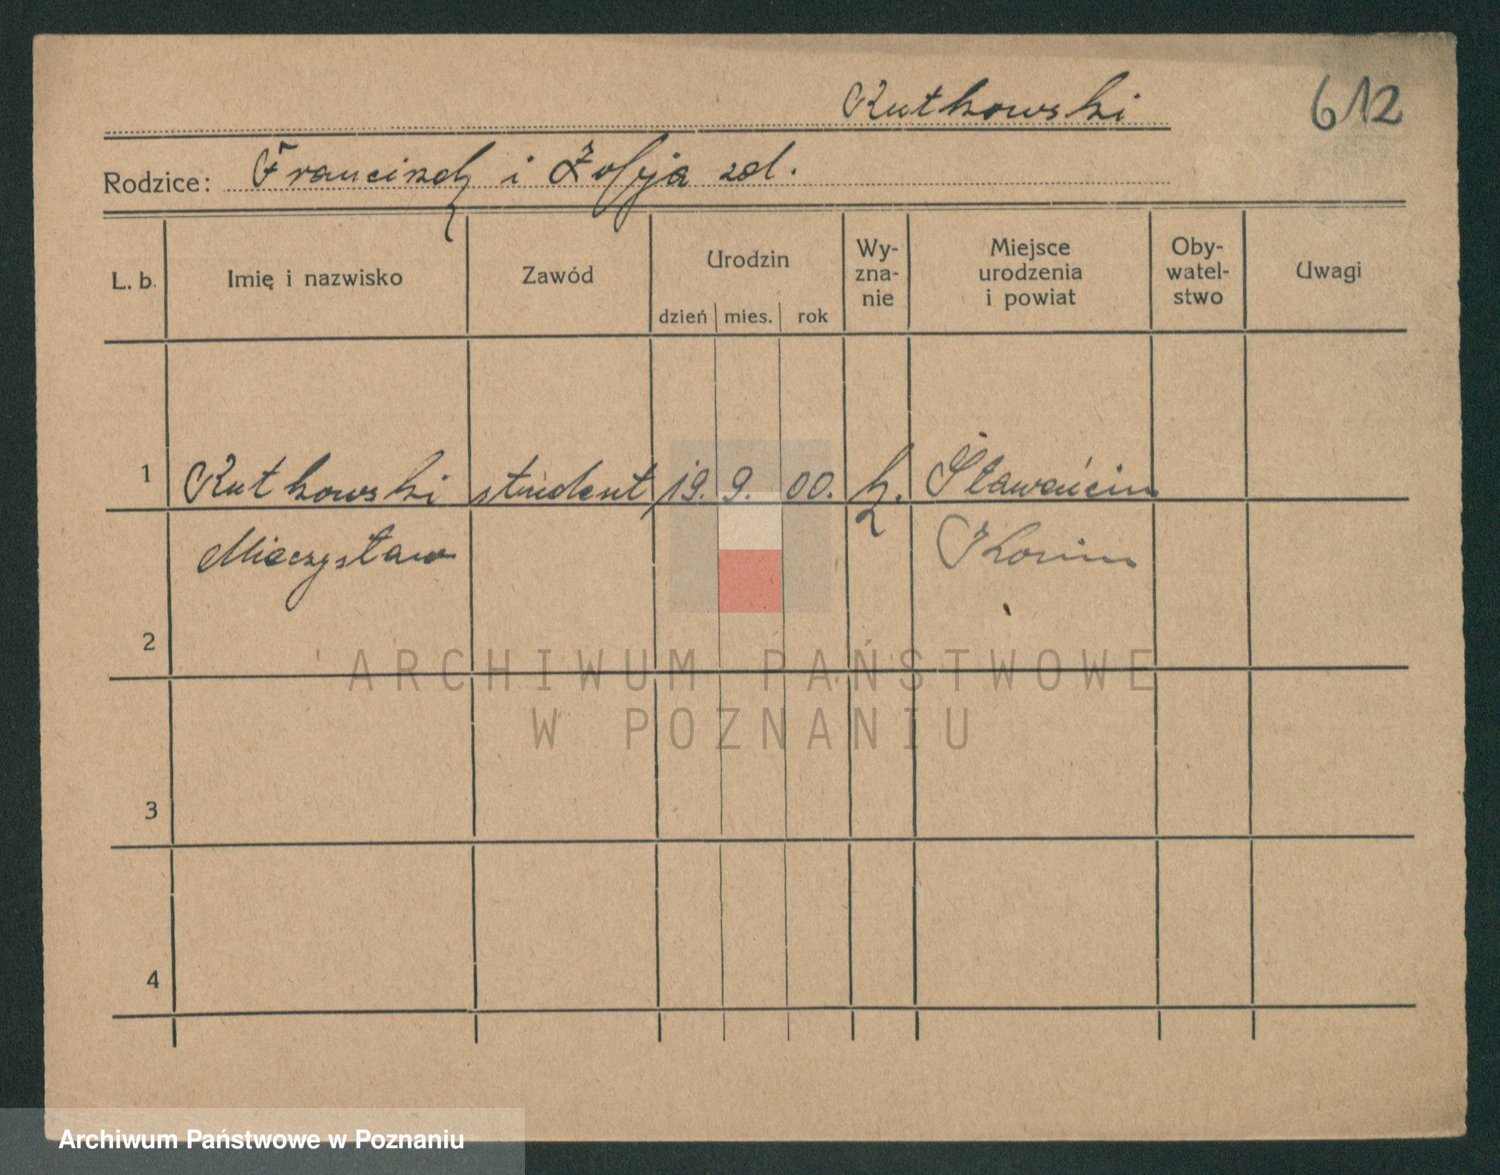 Kutkowski
612
Rodzice: Franciszek i Zofja zd.
L. b.
Imię i nazwisko
Zawód
Urodzin
dzień mies. rok
Wy-
zna-
nie
Miejsce
urodzenia
i powiat
Oby-
watel-
stwo
Uwagi
1 Kutkowski student 19. 9. 00. k. Sławęcin
Mieczysław Konin
2
3
4
ARCHIWUM PAŃSTWOWE
W POZNANIU
Archiwum Państwowe w Poznaniu